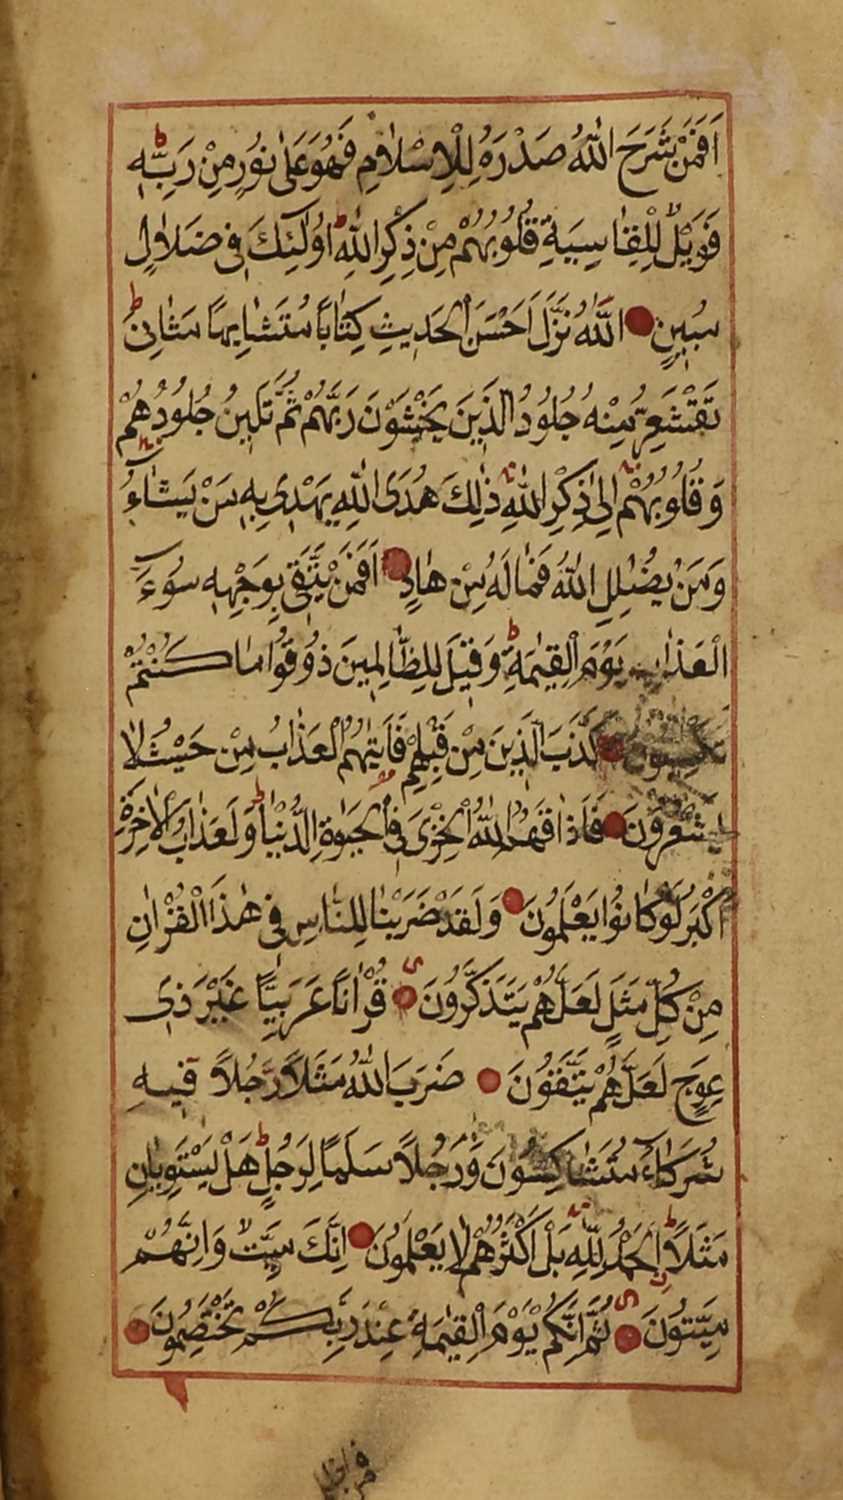 اَفَمَنْ شَرَحَ اللّٰهُ صَدْرَهُ لِلْاِسْلَامِ فَهُوَ عَلٰى نُورٍ مِنْ رَبِّهٖ ط
فَوَيْلٌ لِلْقَاسِيَةِ قُلُوبُهُمْ مِنْ ذِكْرِ اللّٰهِ ط اُولٰٓئِكَ فٖى ضَلَالٍ
مُبٖينٍ اَللّٰهُ نَزَّلَ اَحْسَنَ الْحَدٖيثِ كِتَابًا مُتَشَابِهًا مَثَانِىَ ط
تَقْشَعِرُّ مِنْهُ جُلُودُ الَّذٖينَ يَخْشَوْنَ رَبَّهُمْ ثُمَّ تَلٖينُ جُلُودُهُمْ
وَقُلُوبُهُمْ اِلٰى ذِكْرِ اللّٰهِ ذٰلِكَ هُدَى اللّٰهِ يَهْدٖى بِهٖ مَنْ يَشَٓاءُ
وَمَنْ يُضْلِلِ اللّٰهُ فَمَا لَهُ مِنْ هَادٍ اَفَمَنْ يَتَّقٖى بِوَجْهِهٖ سُٓوءَ
الْعَذَابِ يَوْمَ الْقِيٰمَةِ ط وَقٖيلَ لِلظَّالِمٖينَ ذُوقُوا مَا كُنْتُمْ
تَكْسِبُونَ كَذَّبَ الَّذٖينَ مِنْ قَبْلِهِمْ فَاَتٰيهُمُ الْعَذَابُ مِنْ حَيْثُ لَا
يَشْعُرُونَ فَاَذَاقَهُمُ اللّٰهُ الْخِزْىَ فِى الْحَيٰوةِ الدُّنْيَا ط وَلَعَذَابُ الْاٰخِرَةِ
اَكْبَرُ لَوْ كَانُوا يَعْلَمُونَ وَلَقَدْ ضَرَبْنَا لِلنَّاسِ فٖى هٰذَا الْقُرْاٰنِ
مِنْ كُلِّ مَثَلٍ لَعَلَّهُمْ يَتَذَكَّرُونَ قُرْاٰنًا عَرَبِيًّا غَيْرَ ذٖى
عِوَجٍ لَعَلَّهُمْ يَتَّقُونَ ضَرَبَ اللّٰهُ مَثَلًا رَجُلًا فٖيهِ
شُرَكَٓاءُ مُتَشَاكِسُونَ وَرَجُلًا سَلَمًا لِرَجُلٍ ط هَلْ يَسْتَوِيَانِ
مَثَلًا ط اَلْحَمْدُ لِلّٰهِ بَلْ اَكْثَرُهُمْ لَا يَعْلَمُونَ اِنَّكَ مَيِّتٌ وَاِنَّهُمْ
مَيِّتُونَ ثُمَّ اِنَّكُمْ يَوْمَ الْقِيٰمَةِ عِنْدَ رَبِّكُمْ تَخْتَصِمُونَ
فمن اظلم